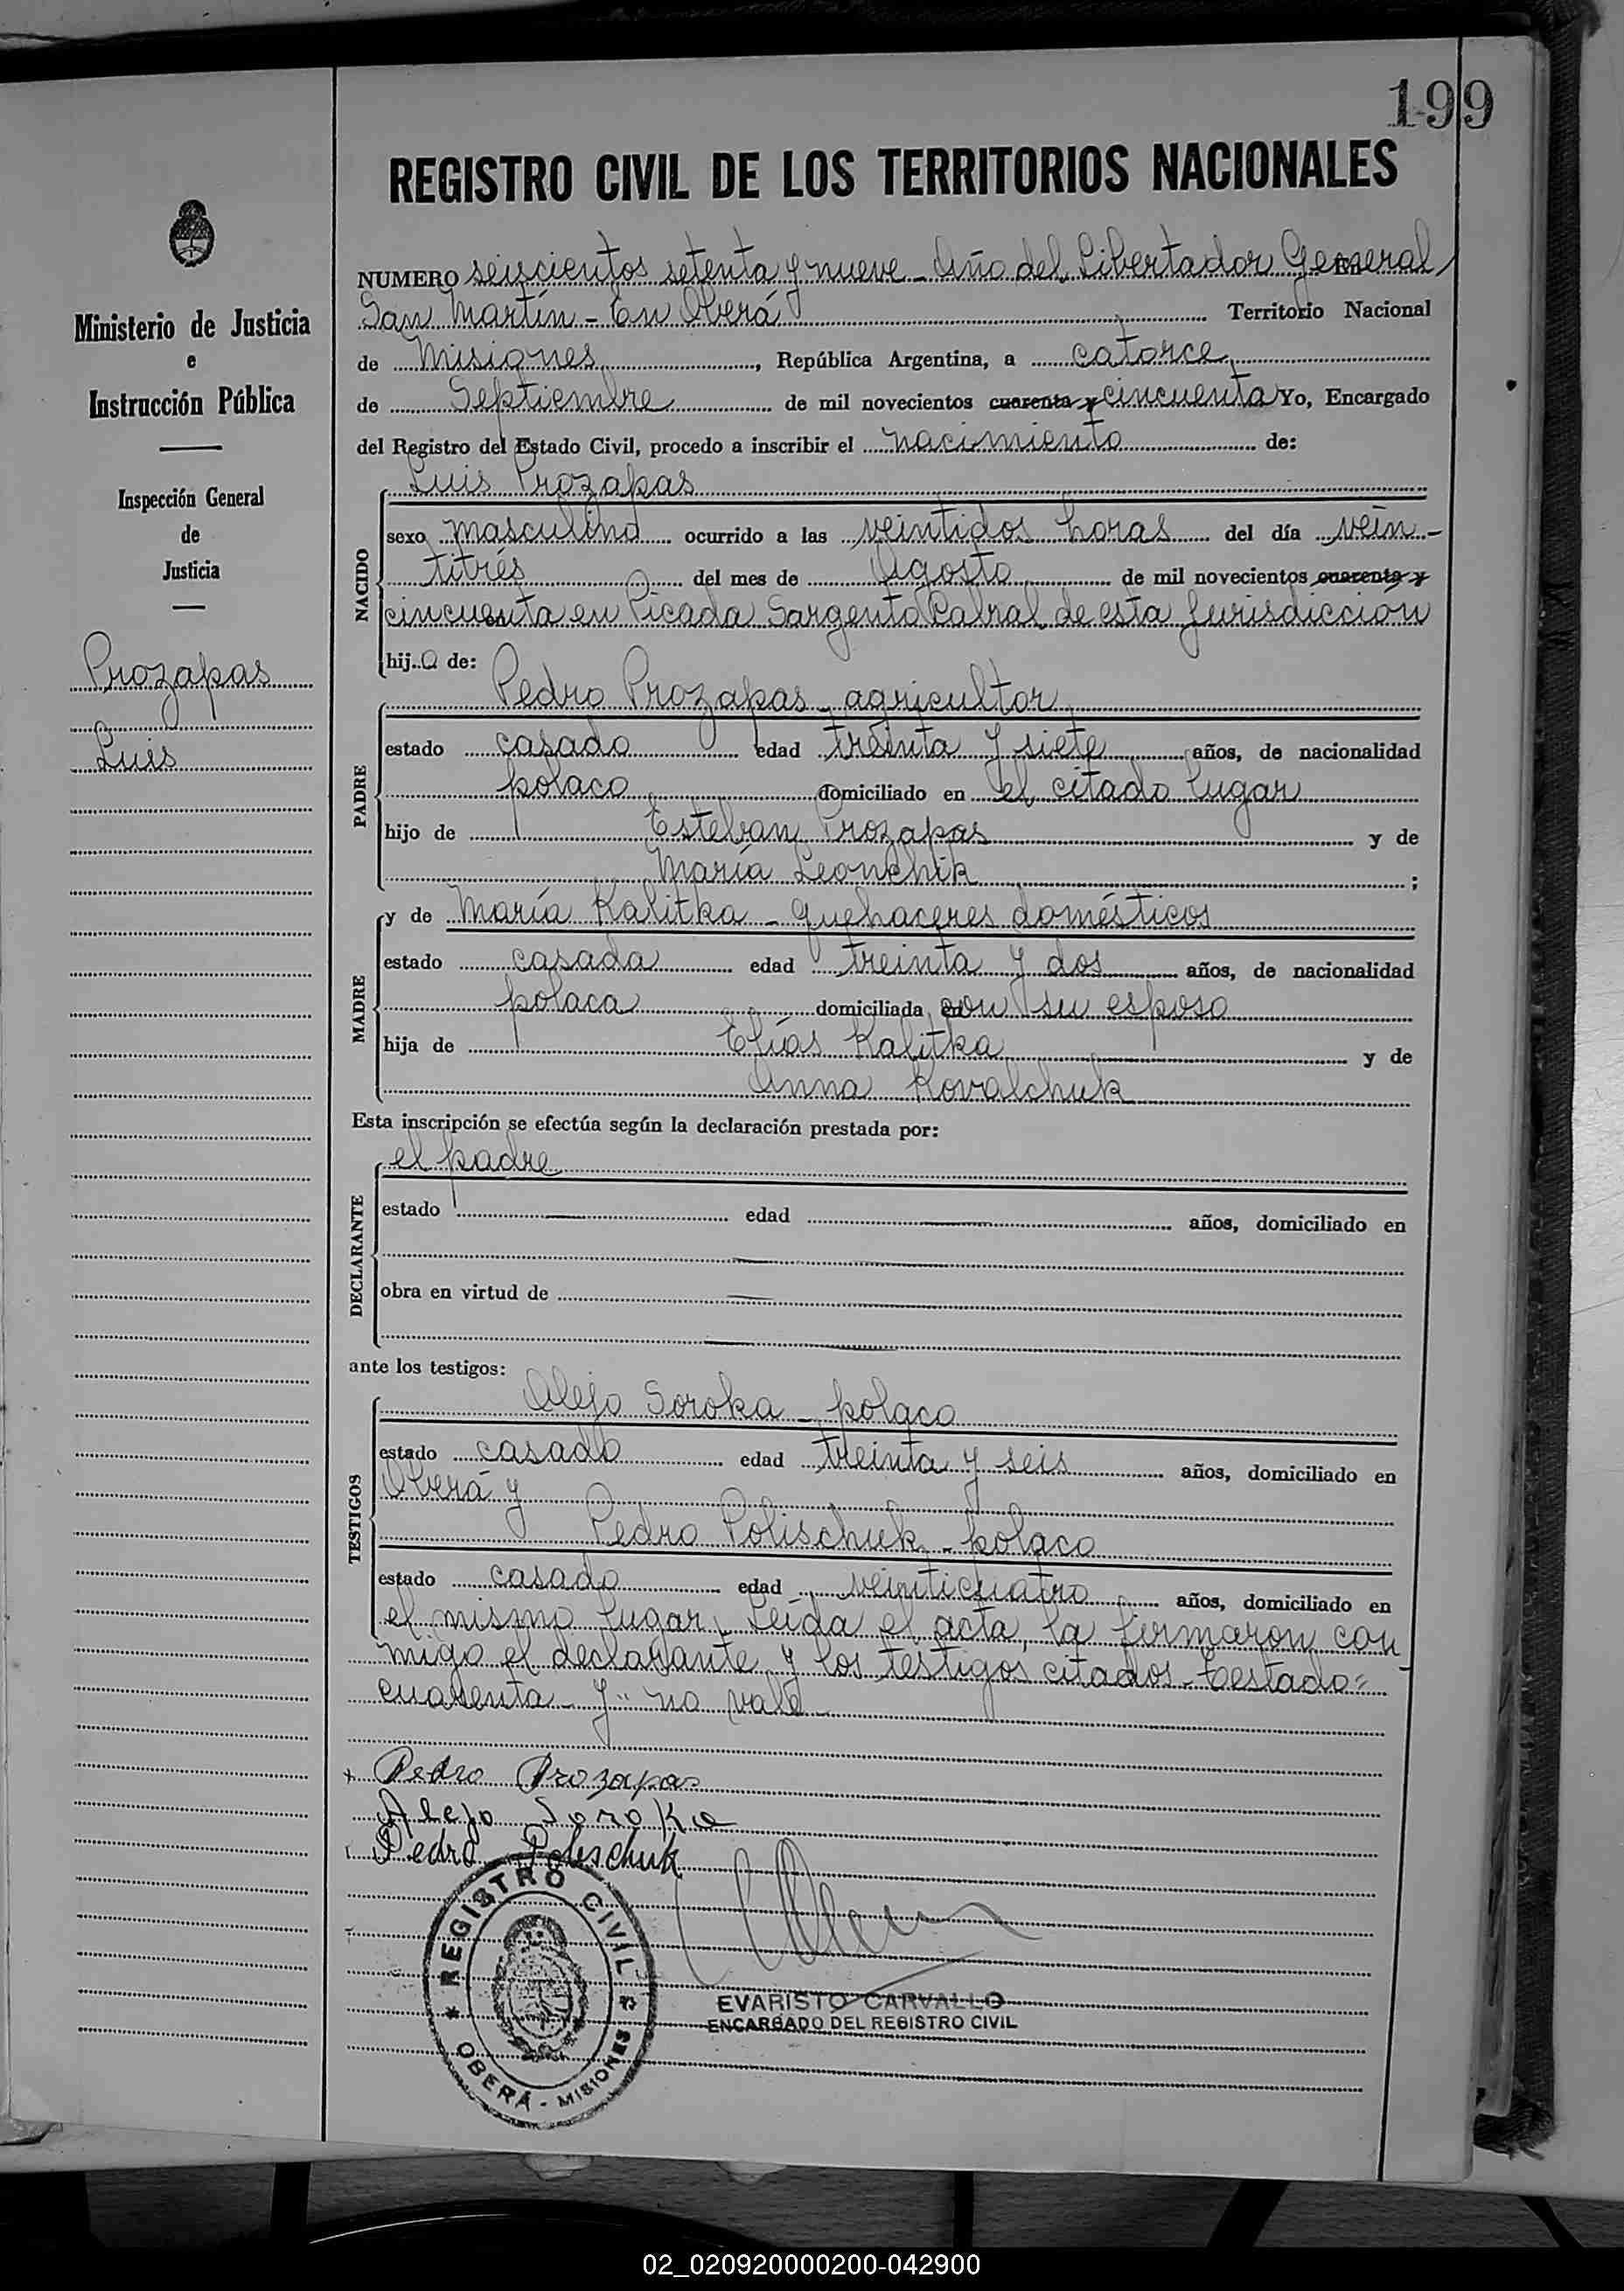 199
REGISTRO CIVIL DE LOS TERRITORIOS NACIONALES
Ministerio de Justicia
e
Instrucción Pública
Inspección General
de
Justicia
Prozapas
Luis
NUMERO seiscientos setenta y nueve - Año del Libertador General
San Martín - En Oberá Territorio Nacional
de Misiones, República Argentina, a catorce
de Septiembre de mil novecientos cuarenta y cincuenta Yo, Encargado
del Registro del Estado Civil, procedo a inscribir el nacimiento de:
NACIDO
Luis Prozapas
sexo masculino ocurrido a las veintidos horas del día vein-
titrés del mes de Agosto de mil novecientos cuarenta y
cincuenta en Picada Sargento Cabral de esta jurisdicción
hijo de:
PADRE
Pedro Prozapas - agricultor
estado casado edad treinta y siete años, de nacionalidad
polaco domiciliado en el citado lugar
hijo de Esteban Prozapas y de
María Leonchik ;
MADRE
y de María Kalitka - quehaceres domésticos
estado casada edad treinta y dos años, de nacionalidad
polaca domiciliada con su esposo
hija de Elías Kalitka y de
Anna Kovalchuk
Esta inscripción se efectúa según la declaración prestada por:
DECLARANTE
el padre
estado edad años, domiciliado en
obra en virtud de
ante los testigos:
TESTIGOS
Alejo Soroka - polaco
estado casado edad treinta y seis años, domiciliado en
Oberá y
Pedro Polischuk - polaco
estado casado edad veinticuatro años, domiciliado en
el mismo lugar. Leída el acta, la firmaron con
migo el declarante y los testigos citados - testado=
cuarenta - y" no vale
Pedro Prozapas
Alejo Soroka
Pedro Polischuk
REGISTRO CIVIL
OBERÁ - MISIONES
EVARISTO CARVALLO
ENCARGADO DEL REGISTRO CIVIL
02_020920000200-042900